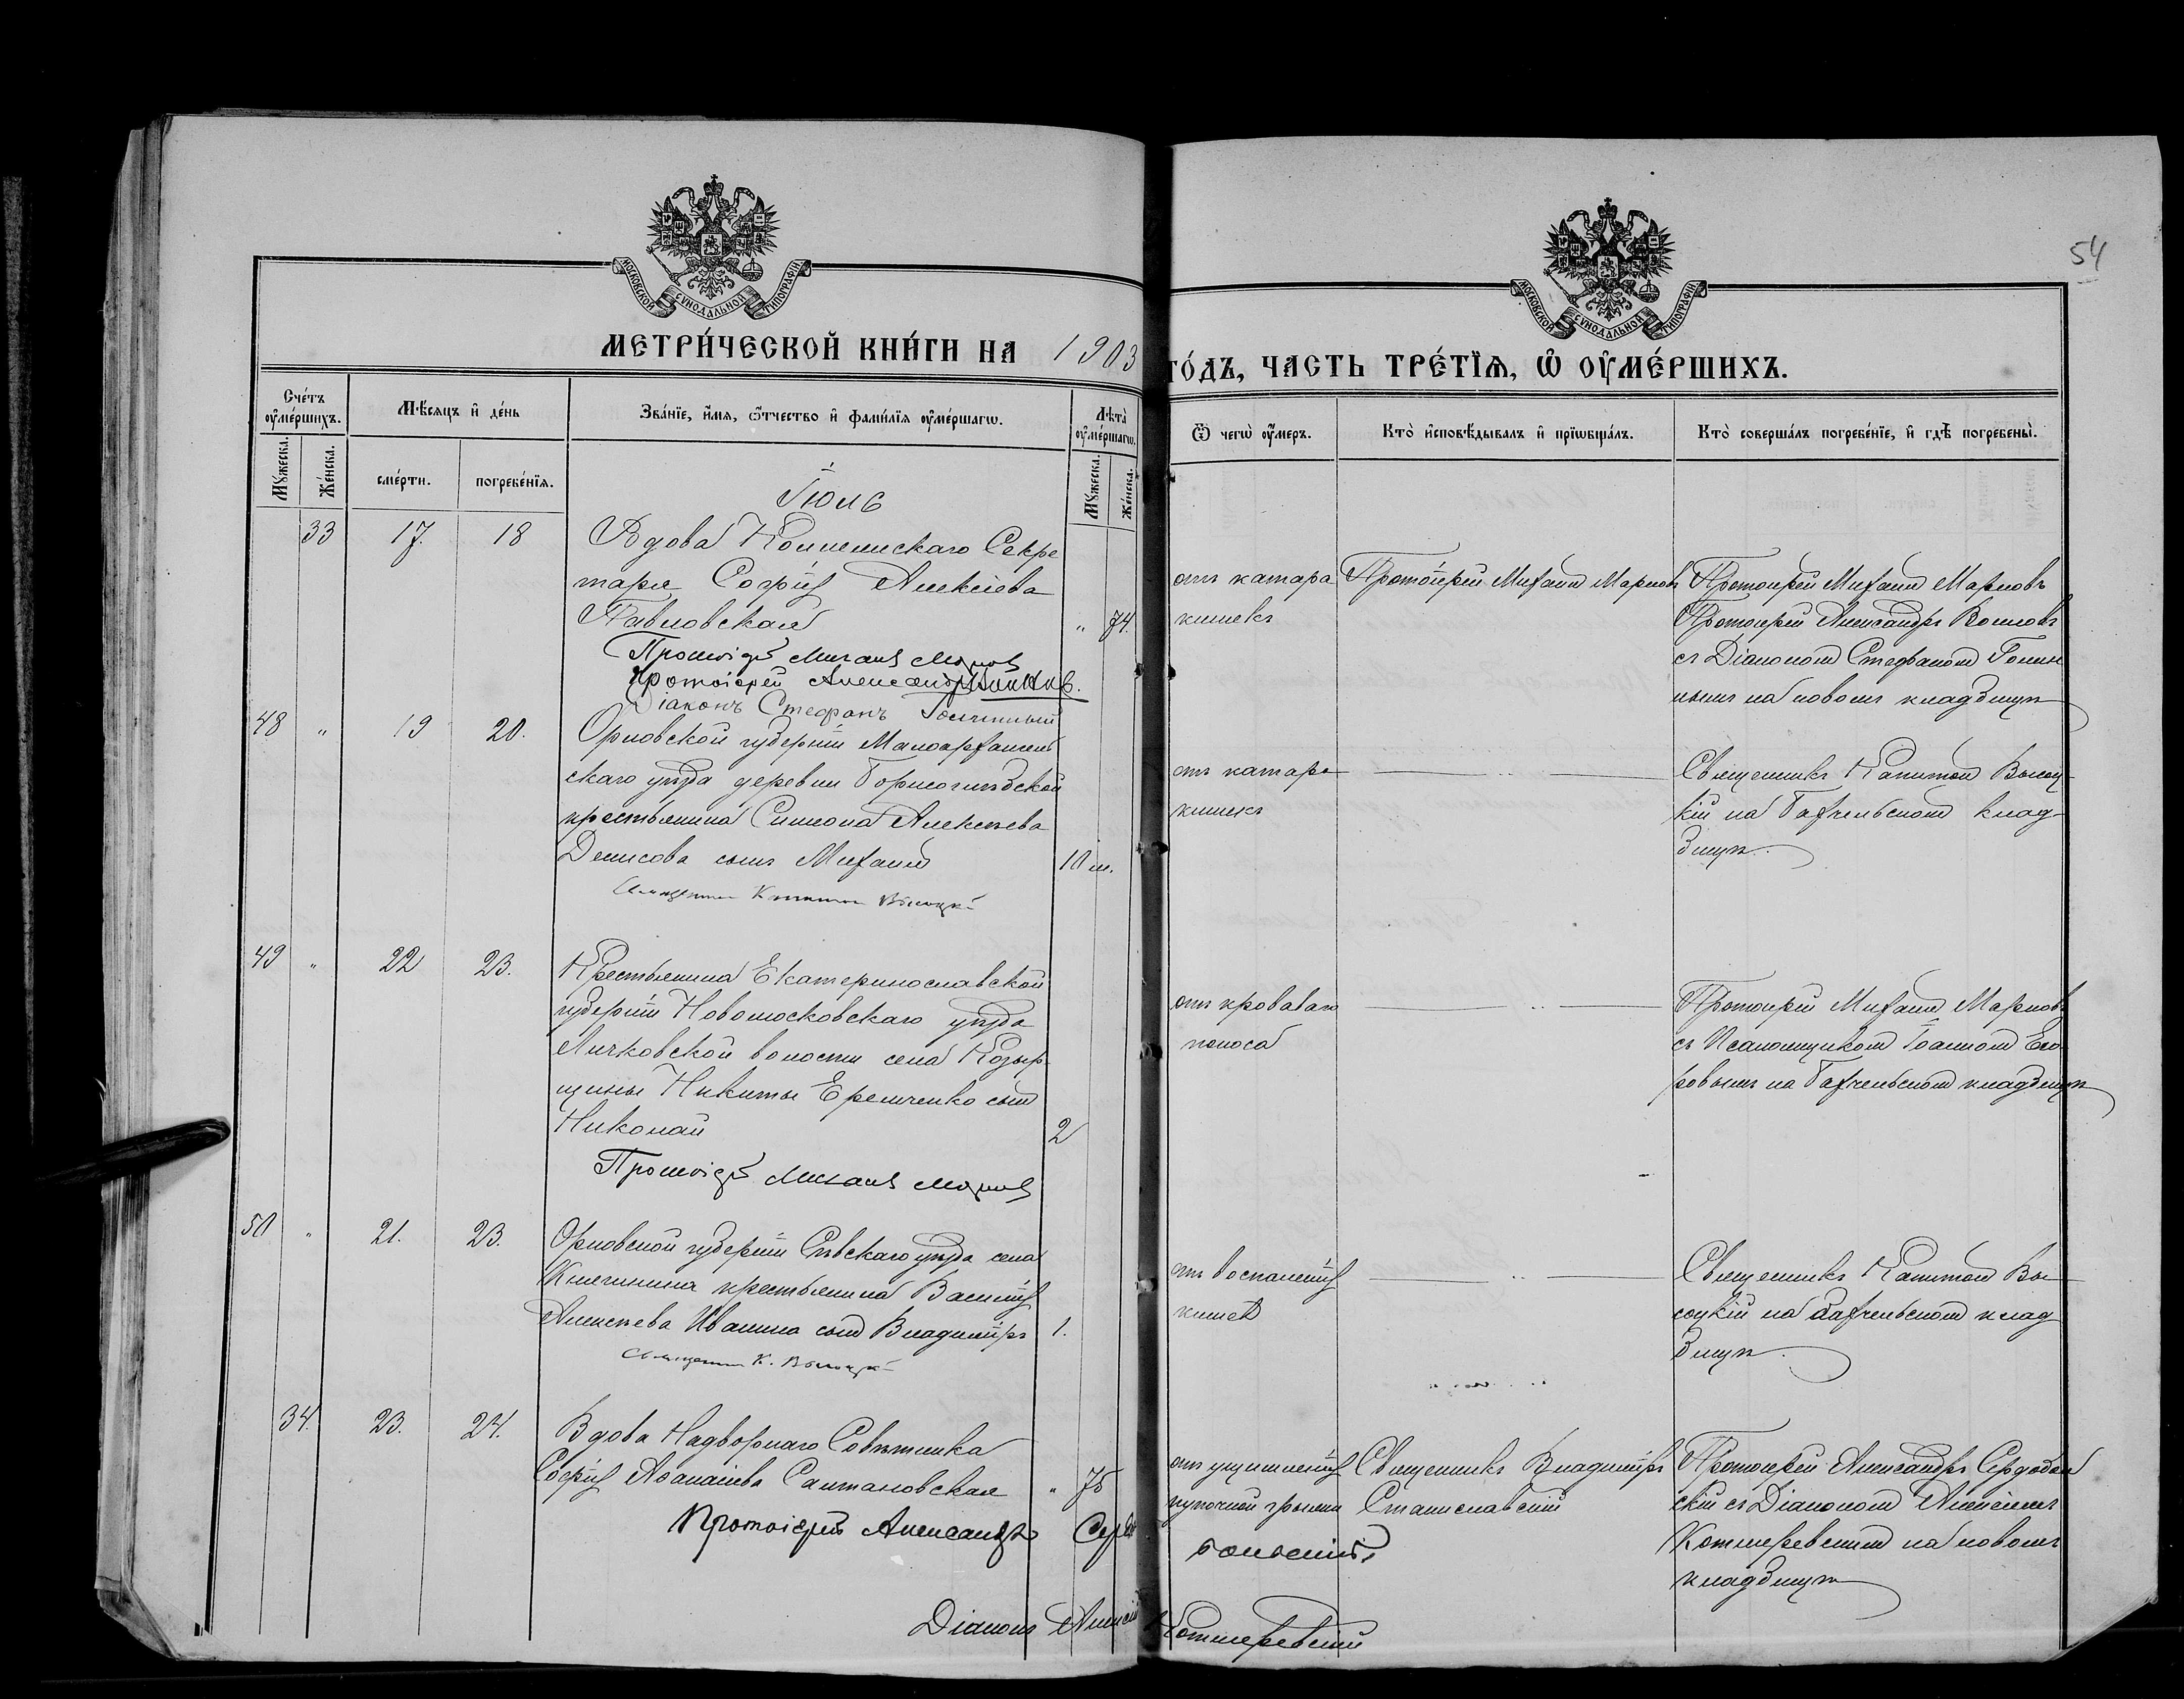 54
МОСКОВСКОЙ СУНОДАЛЬНОЙ ТИПОГРАФІИ
МОСКОВСКОЙ СУНОДАЛЬНОЙ ТИПОГРАФІИ
МЕТРИ́ЧЕСКОЙ КНИ́ГИ НА 1903
ГО́ДЪ, ЧАСТЬ ТРЕ́ТЇѦ, Ѡ҆ ОУ҆МЕ́РШИХЪ.
Сче́тъ оу҆ме́ршихъ.
Мꙋжеска.
Же́нска.
Мѣ́сяцъ и҆ де́нь
сме́рти.
погребе́нїя.
Зва́нїе, и҆́мя, ѻ҆́тчество и҆ фами́лїя оу҆ме́ршагѡ.
Лѣта̀ оу҆ме́ршагѡ.
Мꙋжеска.
Же́нска.
Ѿ чегѡ̀ оу҆́меръ.
Кто̀ и҆сповѣ́дывалъ и҆ прїѡбща́лъ.
Кто̀ соверша́лъ погребе́нїе, и҆ гдѣ̀ погребены̀.
Іюль
33 17. 18
Вдова Коллежскаго Секре
таря Софія Алексіева
Павловская " 74.
Протоіерей Михаилъ Марковъ
Протоіерей Александръ
Діаконъ Стефанъ
отъ катара
кишекъ
Протоіерей Михаилъ Марковъ
Протоіерей Михаилъ Марковъ
Протоіерей Александръ
съ Діакономъ Стефаномъ
на новомъ кладбищѣ
48 " 19 20.
Орловской губерніи Малоархангель
скаго уѣзда деревни
крестьянина Симеона Алексѣева
Денисова сынъ Михаилъ 10 м.
Священникъ Капитонъ Высоцкій
отъ катара
кишекъ
Священникъ Капитонъ Высоц
кій на клад
бищѣ.
49 " 22 23.
Крестьянина Екатеринославской
губерніи Новомосковскаго уѣзда
Личковской волости села Козыр
щины Никиты Еремченко сынъ
Николай 2
Протоіерей Михаилъ Марковъ
отъ кроваваго
поноса
Протоіерей Михаилъ Марковъ
съ Псаломщикомъ Іоанномъ Его
ровымъ на кладбищѣ
50 " 21. 23.
Орловской губерніи Сѣвскаго уѣзда села
Княгинина крестьянина Василія
Алексѣева Иванина сынъ Владиміръ 1.
Священникъ К. Высоцкій
отъ воспаленія
кишекъ
Священникъ Капитонъ Вы
соцкій на клад
бищѣ.
34. 23. 24.
Вдова Надворнаго Совѣтника
Софія Аѳанасіева Салтановская " 75
Протоіерей Александръ Сердобольскій
Діаконъ Алексій Котляревскій
отъ ущемленія
пупочной грыжи
Священникъ Владиміръ
Станиславскій
Протоіерей Александръ Сердоболь
скій съ Діакономъ Алексіемъ
Котляревскимъ на новомъ
кладбищѣ